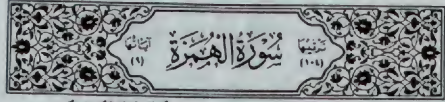 ترتيبها (١٠٤) سُورَةُ الهُمَزَةِ آياتها (٩)